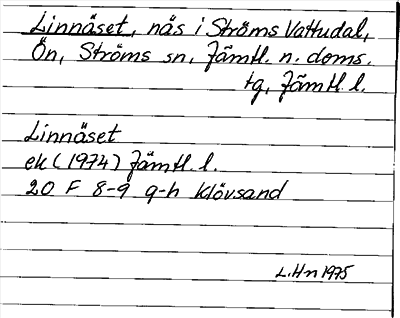 Linnäset, näs i Ströms Vattudal,
Ön, Ströms sn, Jämtl. n. doms.
tg, Jämtl. l.
Linnäset
ek (1974) Jämtl. l.
20 F 8-9 g-h Klövsand
L.Hn 1975